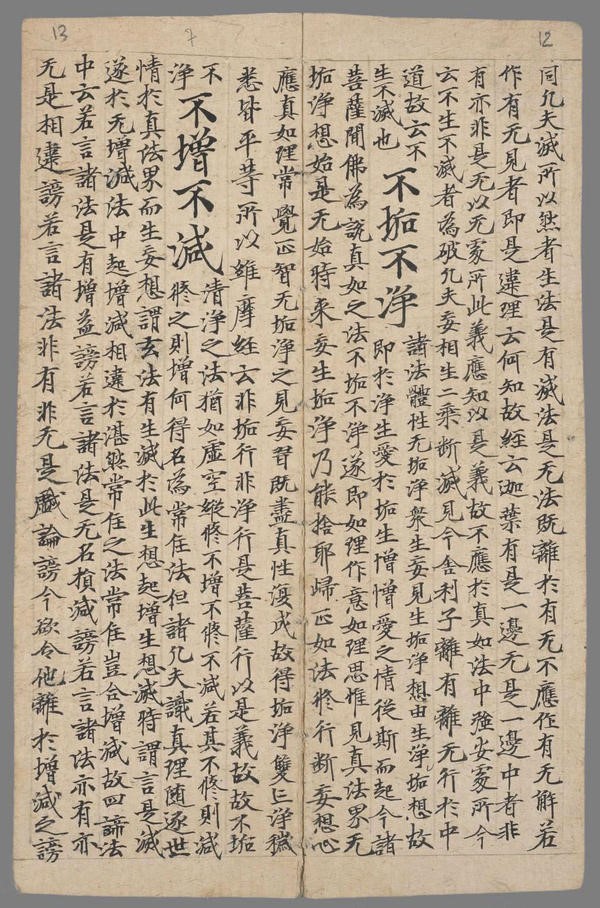 12
同凡夫滅所以然者生法是有滅法是无法既離於有无不應作有无解若
作有无見者即是違理云何知故經云迦葉有是一邊无是一邊中者非
有亦非是无以无家所此義應知以是義故不應於真如法中強安家所今
云不生不滅者為破凡夫妄相生二乘断滅見今舍利子離有離无行於中
道故云不
生不滅也
不垢不淨
諸法體性无垢淨衆生妄見生垢淨想由生淨垢想故
即於淨生愛於垢生憎憎愛之情從斯而起今諸
菩薩聞佛為說真如之法不垢不淨遂即如理作意如理思惟見真法界无
垢淨想始是无始時来妄生垢淨乃能捨耶歸正如法修行断妄想心
7
13
應真如理常覺正智无垢淨之見妄習既盡真性復成故得垢淨雙亡淨穢
悉皆平等所以維摩經云非垢行非淨行是菩薩行以是義故故不垢
不
淨
不增不減
清淨之法猶如虛空縱修不增不修不減若其不修則減
修之則增何得名為常住法但諸凡夫識真理随逐世
情於真法界而生妄想謂玄法有生滅於此生想起增生想滅時謂言是滅
遂於无增減法中起增減相違於湛然常住之法常住豈合增減故四諦法
中云若言諸法是有增益謗若言諸法是无名損減謗若言諸法亦有亦
无是相違謗若言諸法非有非无是戲論謗今欲令他離於增減之謗